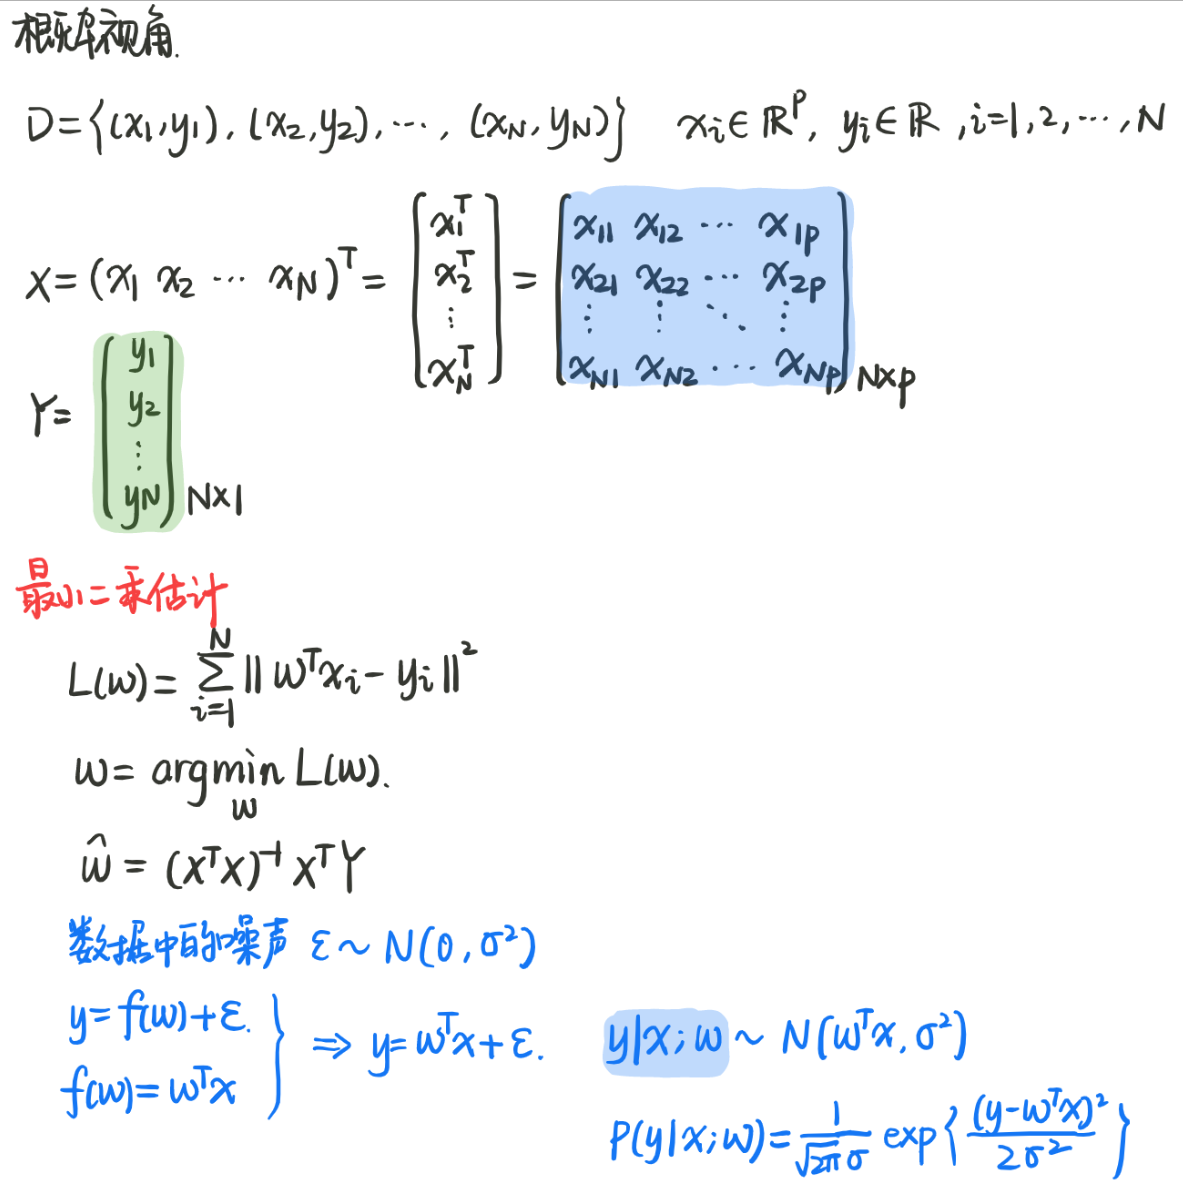 概率视角.
D={(x₁,y₁), (x₂,y₂), ⋯, (x_N,y_N)}  x_i∈ℝ^p, y_i∈ℝ, i=1,2,⋯,N
X=(x₁ x₂ ⋯ x_N)^T = [x₁^T; x₂^T; ⋮; x_N^T] = [x₁₁ x₁₂ ⋯ x_{1p}; x₂₁ x₂₂ ⋯ x_{2p}; ⋮ ⋮ ⋱ ⋮; x_{N1} x_{N2} ⋯ x_{Np}]_{N×p}
Y= [y₁; y₂; ⋮; y_N]_{N×1}
最小二乘估计
L(w)= ∑_{i=1}^{N} ‖w^T x_i - y_i‖²
w= argmin_w L(w).
ŵ = (X^T X)^{-1} X^T Y
数据中的噪声 ε ~ N(0, σ²)
y=f(w)+ε.
f(w)=w^T x } ⇒ y=w^T x+ε.  y|x;w ~ N(w^T x, σ²)
P(y|x;w)= \frac{1}{\sqrt{2π}σ} exp{ \frac{(y-w^T x)²}{2σ²} }